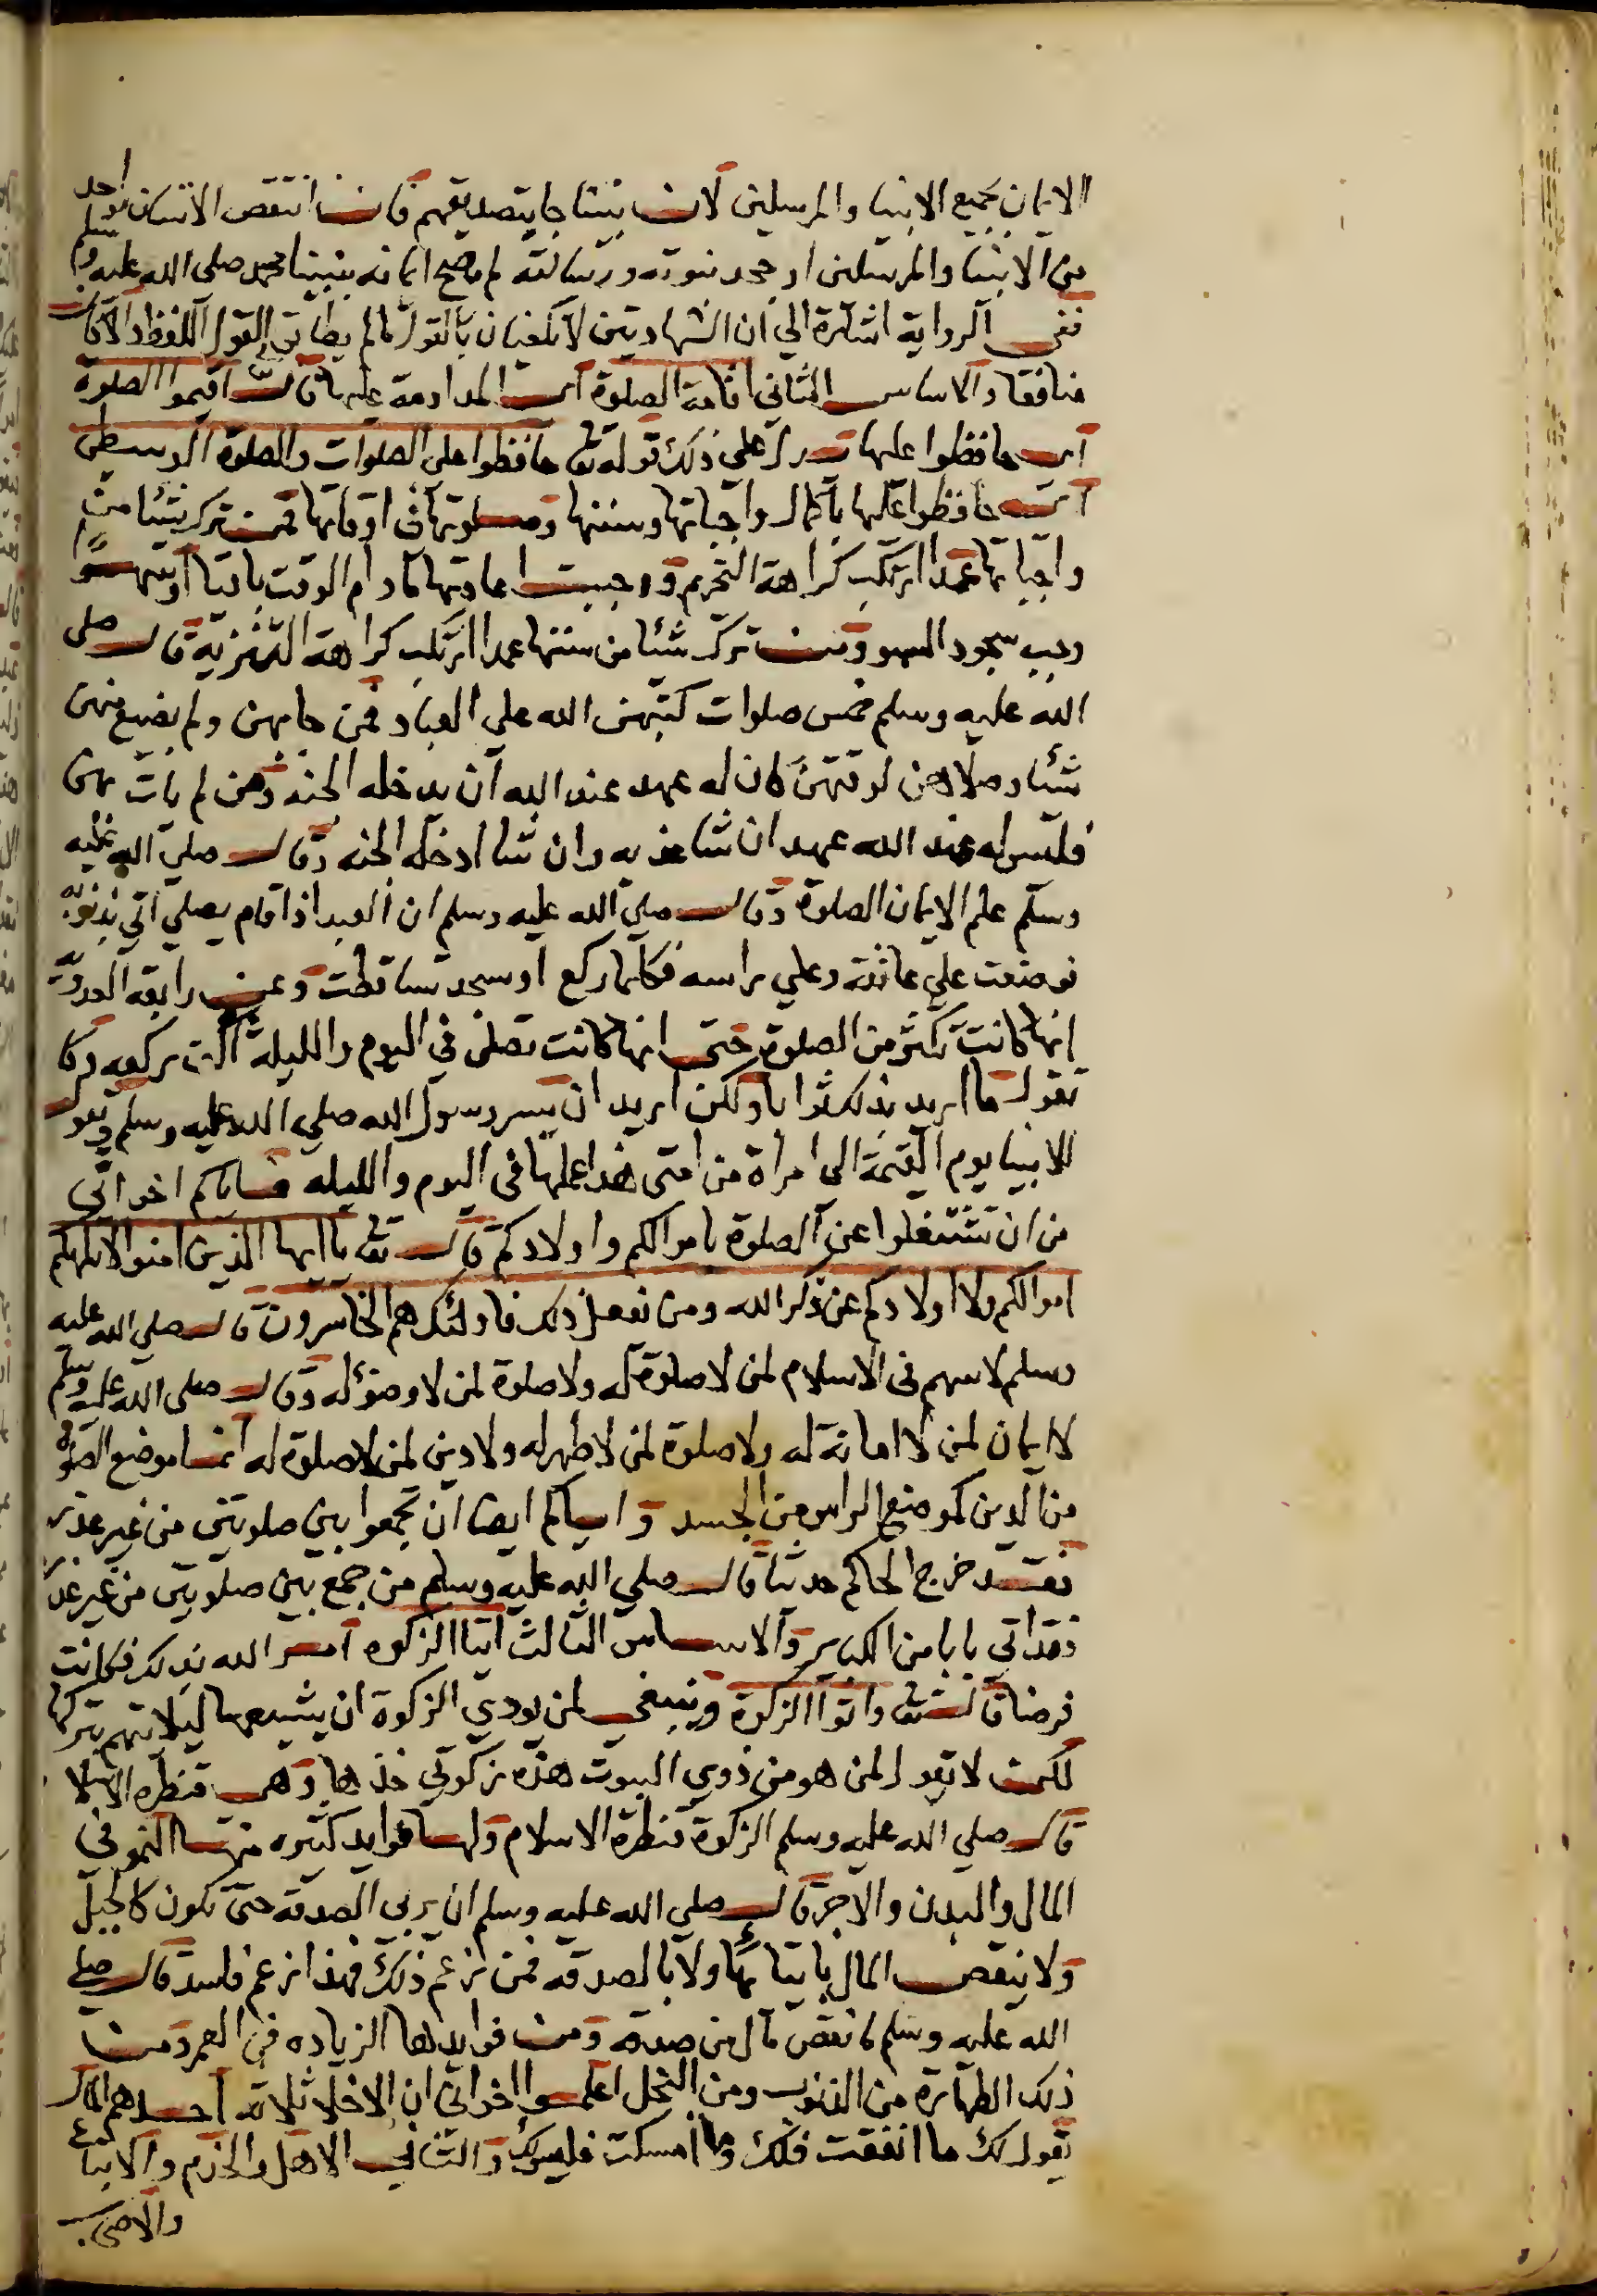 الايمان بجميع الانبيا والمرسلين لان نبينا جا بتصديقهم فان انتقص الانسان بواحد
من الانبيا والمرسلين او جحد نبوته ورسالته لم يصح ايمانه بنبينا محمد صلى الله عليه وسلم
ففي الرواية اشارة الي ان الشهادتين لا تكفيان بالقول مالم يطابق القول اللفظ والا كان
منافقا والاساس الثاني اقامة الصلوة اي المداومة عليها قال تع اقيموا الصلوة
اي حافظوا عليها يدل علي ذلك قوله تع حافظوا على الصلوات والصلوة الوسطي
اي حافظوا عليها باكمال واجباتها وسننها وصلوتها في اوقاتها فمن ترك شيئا من
واجباتها عمدا ارتكب كراهة التحريم ووجبت اعادتها مادام الوقت باقيا او سهوا
وجب سجود السهو ومن ترك شئا من سننها عمدا ارتكب كراهة التنزيه قال صلى
الله عليه وسلم خمس صلوات كتبهن الله علي العباد فمن جا بهن ولم يضيع منهن
شئا وصلاهن لوقتهن كان له عهد عند الله ان يدخله الجنه ومن لم يات بهن
فليس له عند الله عهد ان شا عذبه وان شا ادخله الجنه وقال صلي الله عليه
وسلم علم الايمان الصلوة وقال صلي الله عليه وسلم ان العبد اذا قام يصلي اتي بذنوبه
فوضعت علي عاتقه وعلي راسه فكلما ركع او سجد تساقطت وعن رابعه العدويه
انها كانت تكثر من الصلوة حتى انها كانت تصلى في اليوم والليلة الف ركعه وكا
تقول ما اريد بذلك ثوابا ولكن اريد ان يسر رسول الله صلي الله عليه وسلم ويقول
للانبيا يوم القيمة الى امراة من امتى هذا عملها في اليوم والليله فاياكم اخواني
من ان تشتغلوا عن الصلوة باموالكم واولادكم قال تع يا ايها الذين امنوا لا تلهكم
اموالكم ولا اولادكم عن ذكر الله ومن يفعل ذلك فاولئك هم الخاسرون قال صلي الله عليه
وسلم لا سهم في الاسلام لمن لا صلوة له ولا صلوة لمن لا وضؤ له وقال صلى الله عليه وسلم
لا ايمان لمن لا امانة له ولا صلوة لمن لا طهر له ولا دين لمن لا صلوة له انما موضع الصلوة
من الدين كموضع الراس من الجسد واياكم ايضا ان تجمعوا بين صلوتين من غير عذر
فقد خرج الحاكم حديثا قال صلي الله عليه وسلم من جمع بين صلوتين من غير عذر
فقد اتي بابا من الكباير والاساس الثالث ايتا الزكوه امر الله بذلك فكانت
فرضا قال تع واتوا الزكوة وينبغي لمن يودي الزكوة ان يشيعها ليلا يتهم بتركها
لكن لا تقول لمن هو من ذوي البيوت هذه زكوتي خذها وهي قنطره الاسلا
قال صلي الله عليه وسلم الزكوة قنطرة الاسلام ولها فوايد كثيره منها النمو في
المال والبدن والاجر قال صلي الله عليه وسلم ان يربي الصدقة حتى تكون كالجبل
ولا ينقص المال بايتائها ولا بالصدقه فمن زعم ذلك فهذا زعم فاسد قال صلي
الله عليه وسلم ما نقص مال من صدقه ومن فوايدها الزياده في العمر ومن
ذلك الطهارة من الذنوب ومن البخل اعلموا اخواني ان الاخلا ثلاثه احدهم المال
يقول لك ما انفقت فلك وما امسكت فليس لك والثاني الاهل والخدم والاتباع
والاصحاب